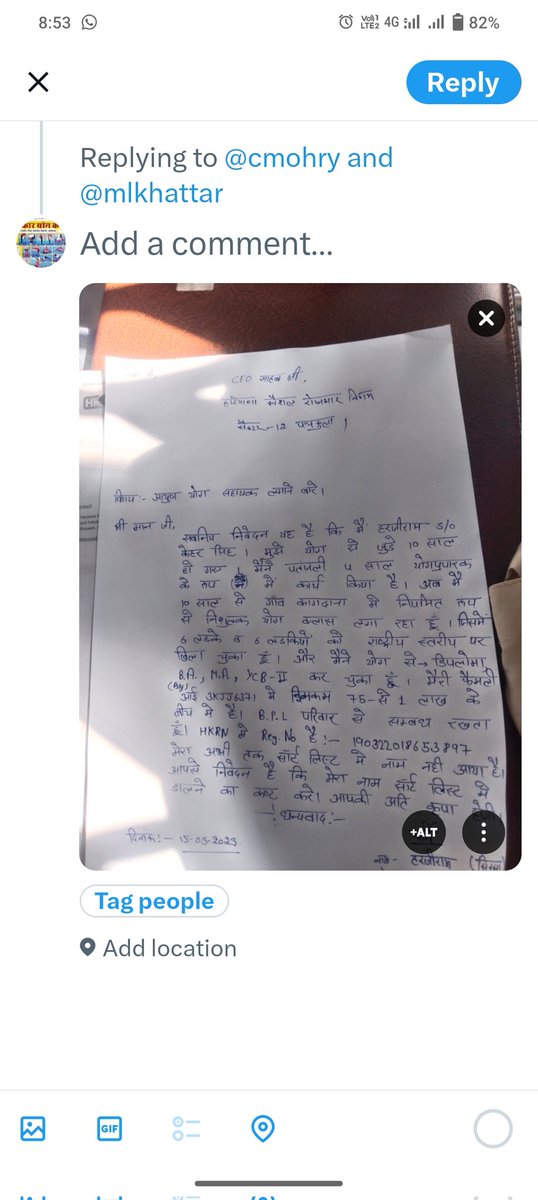 8:53
Vo))1 LTE2 4G 82%
Reply
Replying to @cmohry and
@mlkhattar
Add a comment...
HK
CEO साहब जी,
हरियाणा कौशल रोजगार निगम
सैक्टर-12 पंचकुला।
विषय:- आयुष योग सहायक लगाने बारे।
श्री मान जी,
सविनय निवेदन यह है कि मैं हरजीराम S/o
केहर सिंह। मुझे योग से जुडे 10 साल
हो गए। मैंने पतंजली 4 साल योगप्रचारक
के रूप में कार्य किया है। अब मैं
10 साल से गाँव कागदाना में नियमित रूप
से निशुल्क योग क्लास लगा रहा हूँ। जिसमें
6 लडके व 6 लडकियों को राष्ट्रीय स्तरीय पर
खिला चुका हूँ। और मैंने योग से→ डिप्लोमा
B.A., M.A., YCB-II कर चुका हूँ। मेरी फैमली
आई 3KJJ6371 में 75-से 1 लाख के
बीच में है। B.P.L परिवार से सम्बध रखता
हूँ। HKRN में Reg. No है!- 190322018653897
मेरा अभी तक सॉर्ट लिस्ट में नाम नही आया है।
आपसे निवेदन है कि मेरा नाम सॉर्ट लिस्ट में
डालने का कष्ट करे। आपकी अति कृपा होगी।
!धन्यवाद:-
दिनांक!- 15-03-2023
नाम- हरजीराम
+ALT
Tag people
Add location
GIF